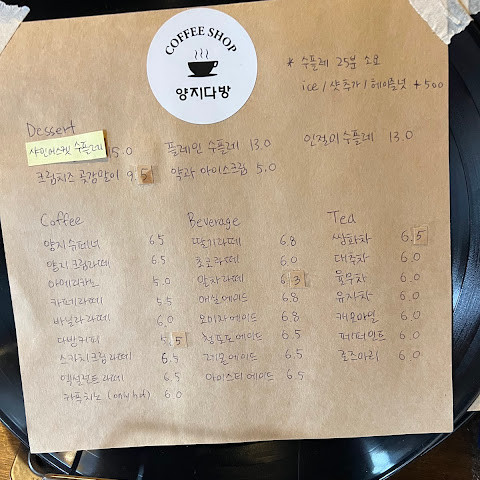 COFFEE SHOP
양지다방
* 수플레 25분 소요
ice / 샷추가 / 헤이즐넛 +500
Dessert
샤인머스켓 수플레 15.0
플레인 수플레 13.0
인절미 수플레 13.0
크림치즈 곶감말이 9.5
약과 아이스크림 5.0
Coffee
양지슈페너 6.5
양지크림라떼 6.5
아메리카노 5.0
카페라떼 5.5
바닐라라떼 6.0
다방커피 5.5
스카치크림라떼 6.5
엑설런트라떼 6.5
카푸치노 (only hot) 6.0
Beverage
딸기라떼 6.8
초코라떼 6.0
말차라떼 6.3
애플에이드 6.8
오미자에이드 6.8
청포도에이드 6.5
레몬에이드 6.5
아이스티에이드 6.5
Tea
쌍화차 6.5
대추차 6.0
율무차 6.0
유자차 6.0
캐모마일 6.0
페퍼민트 6.0
로즈마리 6.0